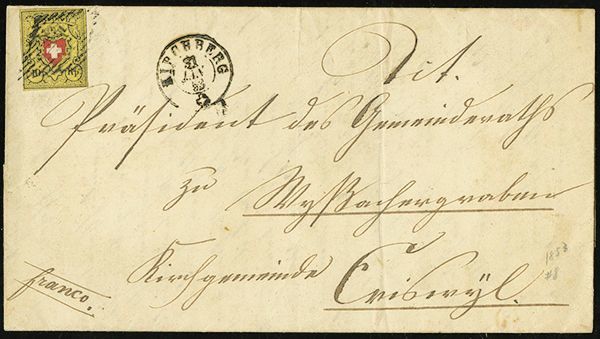 KIRCHBERG
21
Tit.
Präsident des Gemeinderaths
zu Wyßachengraben
Kirchgemeinde Eriswyl.
franco.
1853
#8